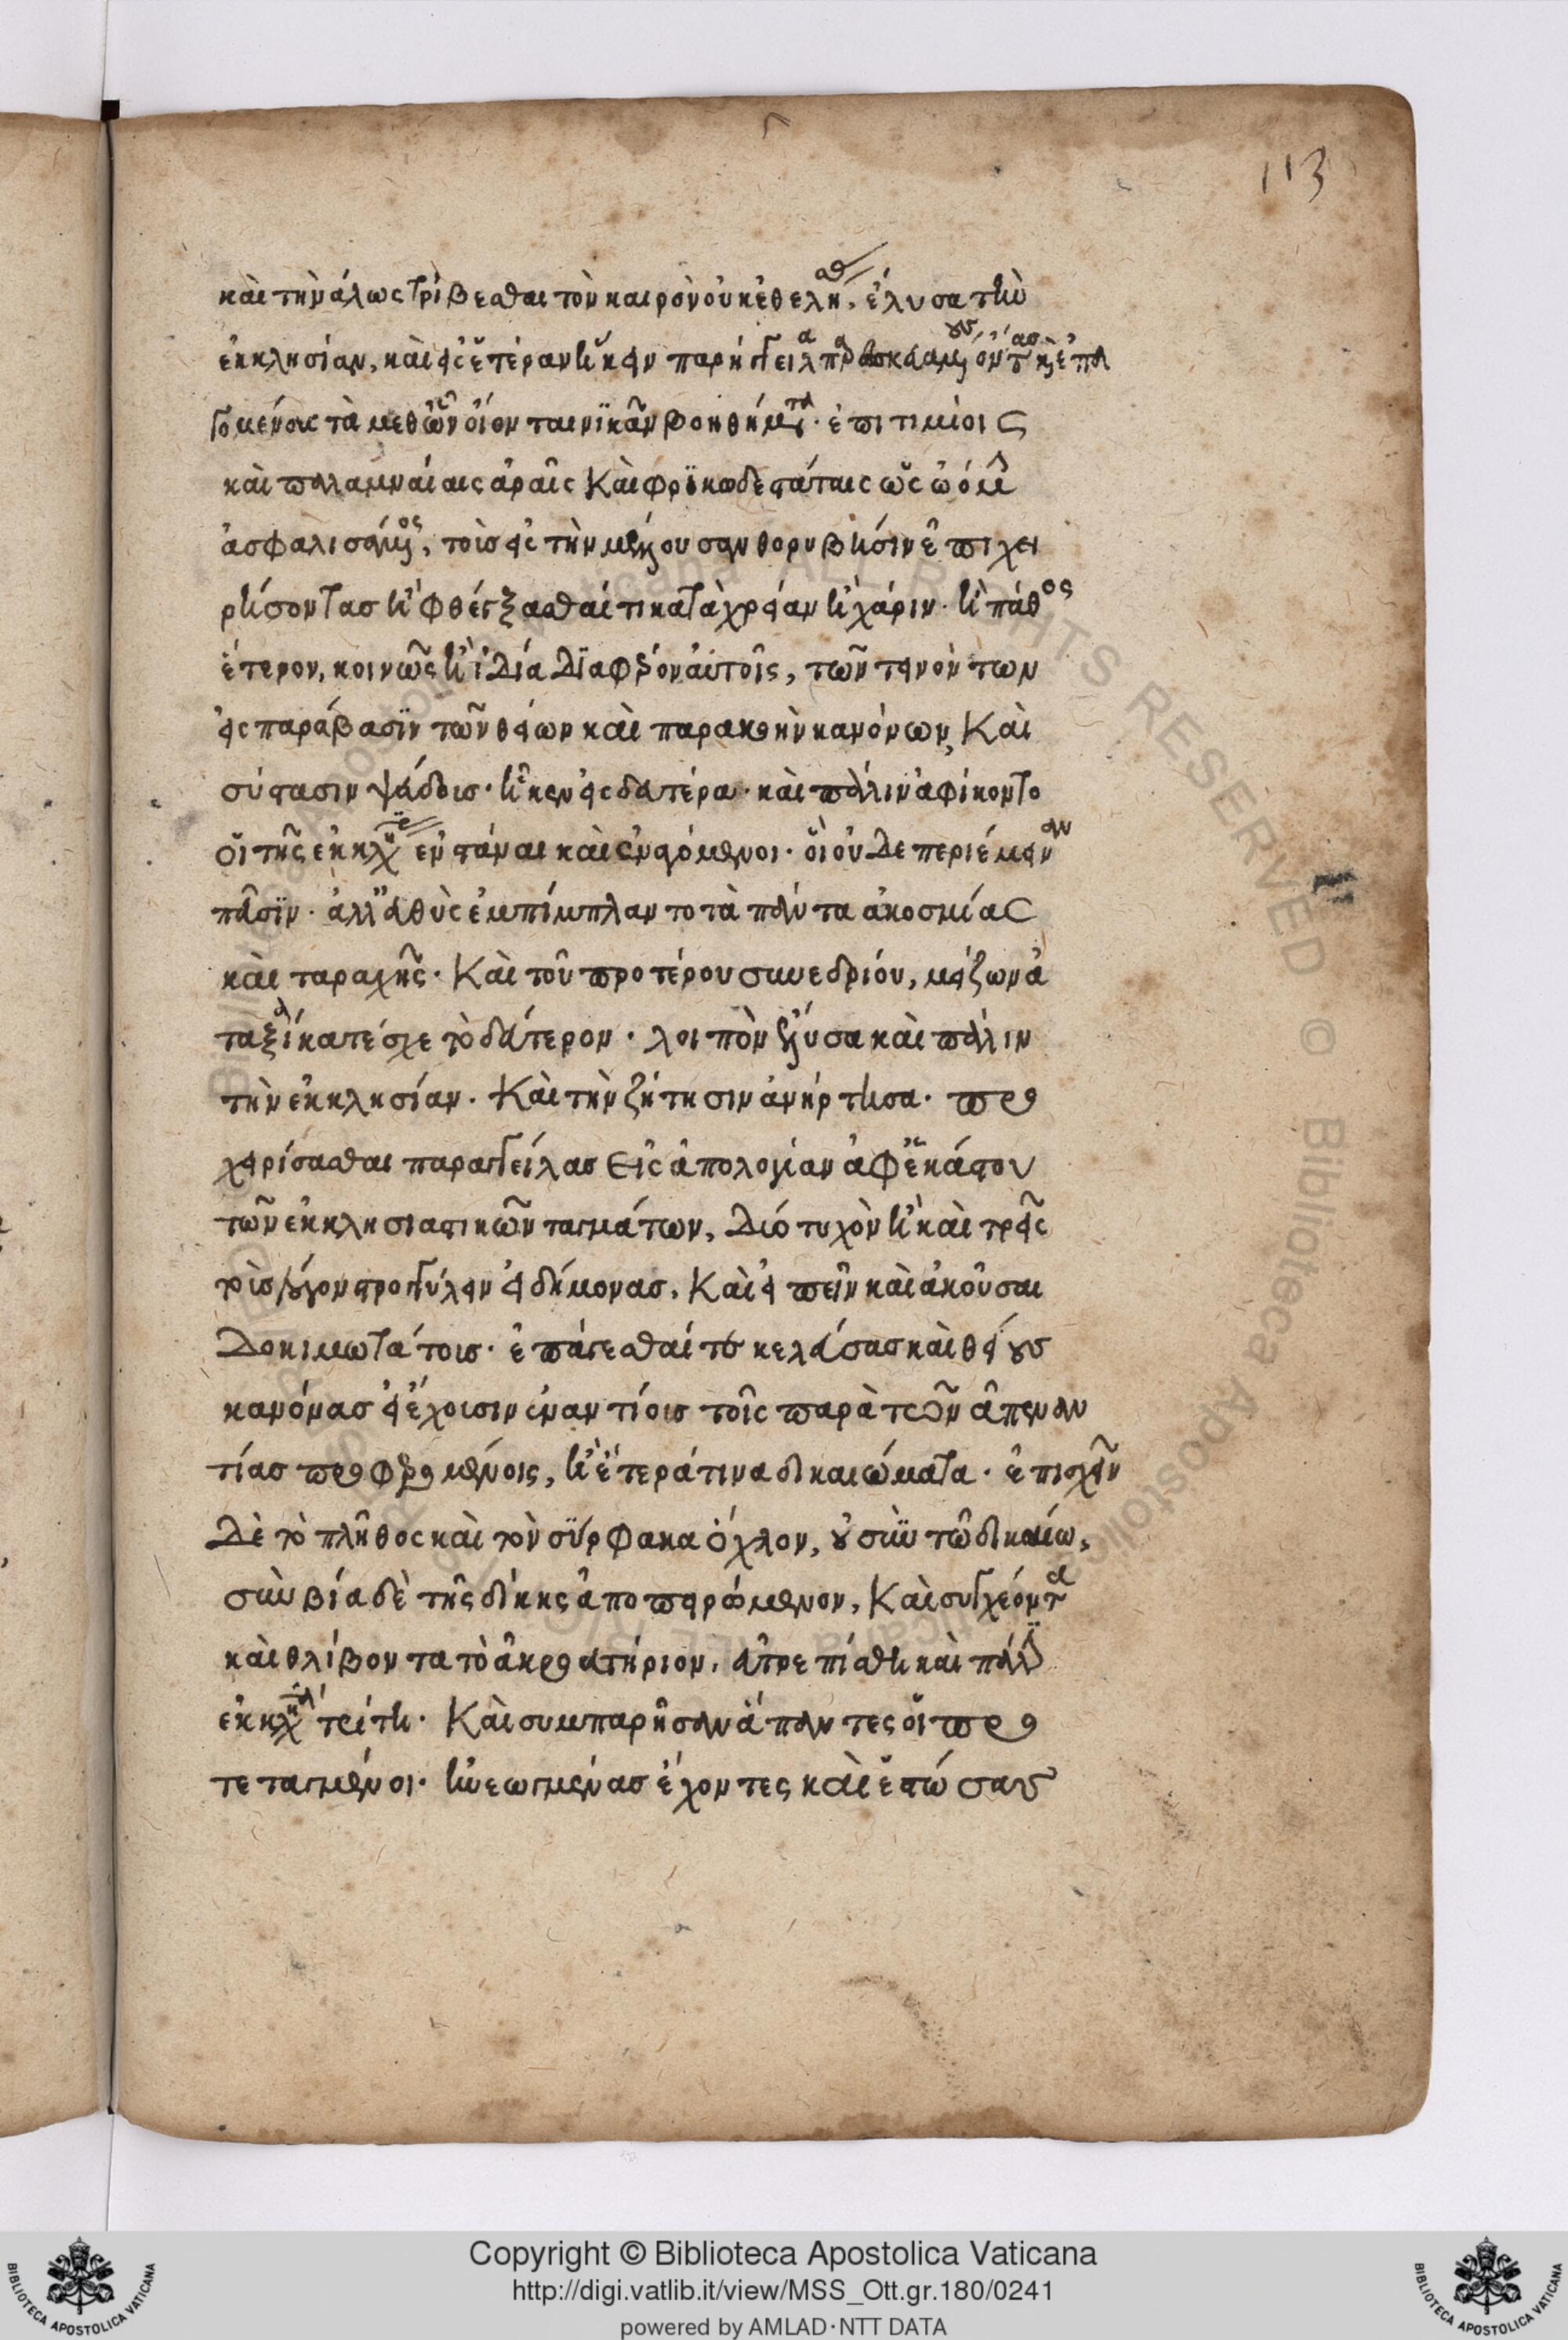 113
καὶ τὴν ἄλως τρίβεσθαι τὸν καιρὸν οὐκ ἐθελή, ἔλυσα τὴν
ἐκκλησίαν, καὶ εἰς ἑτέραν ἥκειν παρήγγειλα
γομένοις τὰ μεθ ὧν οἴονται νικᾶν βοηθήματα. ἐπιτιμίοις
καὶ παλαμναίαις ἀραῖς καὶ φρικωδεστάταις ὡς
ἀσφαλισάμενος, τοῖς εἰς τὴν μένουσαν θορυβῆσιν ἐπιχει
ρήσοντας ἢ φθέγξασθαί τι κατὰ χρείαν ἢ χάριν. ἢ πάθος
ἕτερον, κοινῶς ἢ ἰδία διαφέρον αὐτοῖς, τῶν τεινόντων
εἰς παράβασιν τῶν θείων καὶ παρακοὴν κανόνων, καὶ
σύστασιν ψεύδοις. ἧκεν ἐς δευτέρα. καὶ πάλιν ἀφίκοντο
οἱ τῆς ἐκκλησίας ἐνστάναι καὶ
πᾶσιν. ἀλλ εὐθὺς ἐμπίμπλαντο τὰ πάντα ἀκοσμίας
καὶ ταραχῆς. καὶ τοῦ προτέρου συνεδρίου, μείζων ἀ
ταξία κατέσχε τὸ δεύτερον. λοιπὸν ἔλυσα καὶ πάλιν
τὴν ἐκκλησίαν. καὶ τὴν ζήτησιν ἀνήρτησα. προ
χειρίσασθαι παραγγείλας εἰς ἀπολογίαν ἀφ ἑκάστου
τῶν ἐκκλησιαστικῶν ταγμάτων, διό τυχὸν ἢ καὶ τρεῖς
τοῖς λόγον στρογγύλειν εἰδήμονας. καὶ εἰπεῖν καὶ ἀκοῦσαι
δοκιμωτάτοις. ἐπάγεσθαί τε κελεύσας καὶ θείους
κανόνας εἰ ἔχοισιν ἐναντίοις τοῖς παρὰ τῶν ἀπεναν
τίας προφερομένοις, ἢ ἕτερά τινα δικαιώματα. ἐπισχεῖν
δὲ τὸ πλῆθος καὶ τὸν σύρφακα ὄχλον, οὐ σὺν τῶ δικαίω,
σὺν βία δὲ τῆς δίκης ἀποπειρώμενον, καὶ συγχέοντα
καὶ θλίβοντα τὸ ἀκροατήριον. εὐτρεπίσθη καὶ πάλιν
ἐκκλησία τρίτη. καὶ συμπαρῆσαν ἅπαντες οἱ προ
τεταγμένοι. ἠνεωγμένας ἔχοντες καὶ ἑστώσας
Copyright © Biblioteca Apostolica Vaticana
http://digi.vatlib.it/view/MSS_Ott.gr.180/0241
powered by AMLAD·NTT DATA